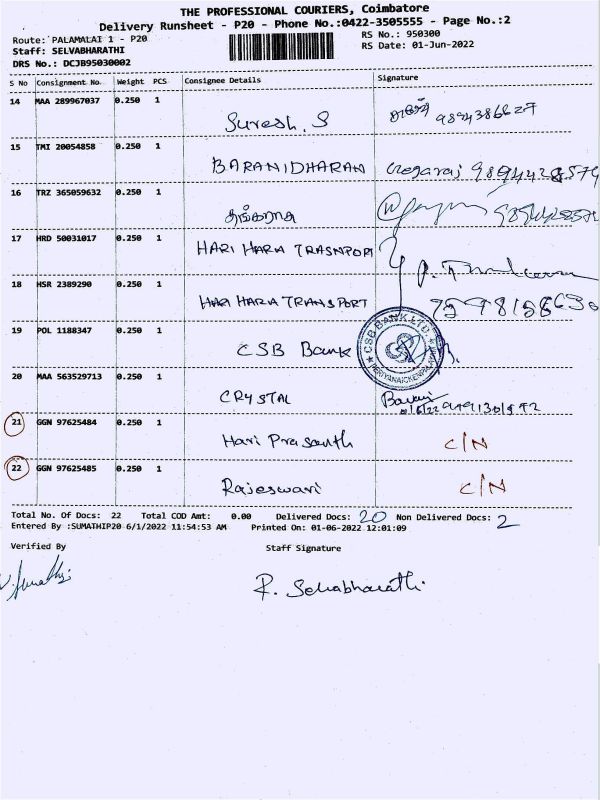 THE PROFESSIONAL COURIERS, Coimbatore
Delivery Runsheet - P20 - Phone No.:0422-3505555 - Page No.:2
Route: PALAMALAI 1 - P20 RS No.: 950300
Staff: SELVABHARATHI RS Date: 01-Jun-2022
DRS No.: DCJB95030002
S No Consignment No. Weight PCS Consignee Details Signature
14 MAA 289967037 0.250 1 Suresh. S சுரேஷ் 9894386627
15 TMI 20054858 0.250 1 BARANIDHARAN 9894428574
16 TRZ 365059632 0.250 1 தங்கராசு
17 HRD 50031017 0.250 1 HARI HARA TRASNPORT
18 HSR 2389290 0.250 1 HARI HARA TRANSPORT 7598158630
19 POL 1188347 0.250 1 CSB Bank CSB BANK LTD.
20 MAA 563529713 0.250 1 CRYSTAL
21 GGN 97625484 0.250 1 Hari Prasanth C/N
22 GGN 97625485 0.250 1 Rajeswari C/N
Total No. Of Docs: 22 Total COD Amt: 0.00 Delivered Docs: 20 Non Delivered Docs: 2
Entered By :SUMATHIP20 6/1/2022 11:54:53 AM Printed On: 01-06-2022 12:01:09
Verified By Staff Signature
R. Selvabharathi